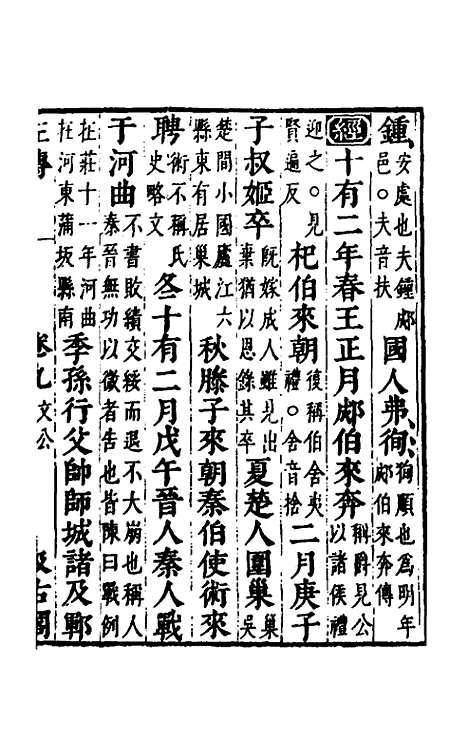 鍾安處也夫鍾郕邑○夫音扶國人弗徇徇順也爲明年郕伯來奔傳
經十有二年春王正月郕伯來奔稱爵見公以諸侯禮
迎之○見賢遍反杞伯來朝復稱伯舍夷禮○舍音捨二月庚子
子叔姬卒既嫁成人雖見出棄猶以恩錄其卒夏楚人圍巢巢吳
楚間小國廬江六縣東有居巢城秋滕子來朝秦伯使術來
聘術不稱氏史略文冬十有二月戊午晉人秦人戰
于河曲不書敗績交綏而退不大崩也稱人秦晉無功以微者告也皆陳曰戰例
在莊十一年河曲在河東蒲坂縣南季孫行父帥師城諸及鄆
左傳 卷九 文公 汲古閣